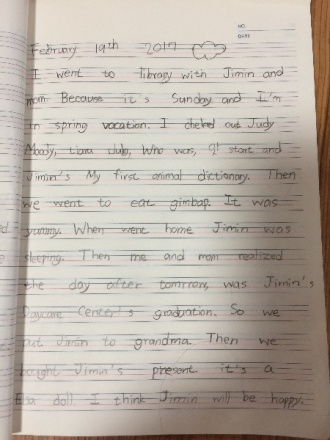 NO.
DATE
February 19th 2017
I went to library with Jimin and
mom. Because it's Sunday and I'm
in spring vocation. I cheked out Judy
Moody, Who was, start and
Jimin's My first animal dictionary. Then
we went to eat gimbap. It was
yummy. When went home Jimin was
sleeping. Then me and mom realized
the day after tomrrow, was Jimin's
Daycare Center's graduation. So we
put Jimin to grandma. Then we
bought Jimin's present it's a
doll. I think Jimin will be happy.